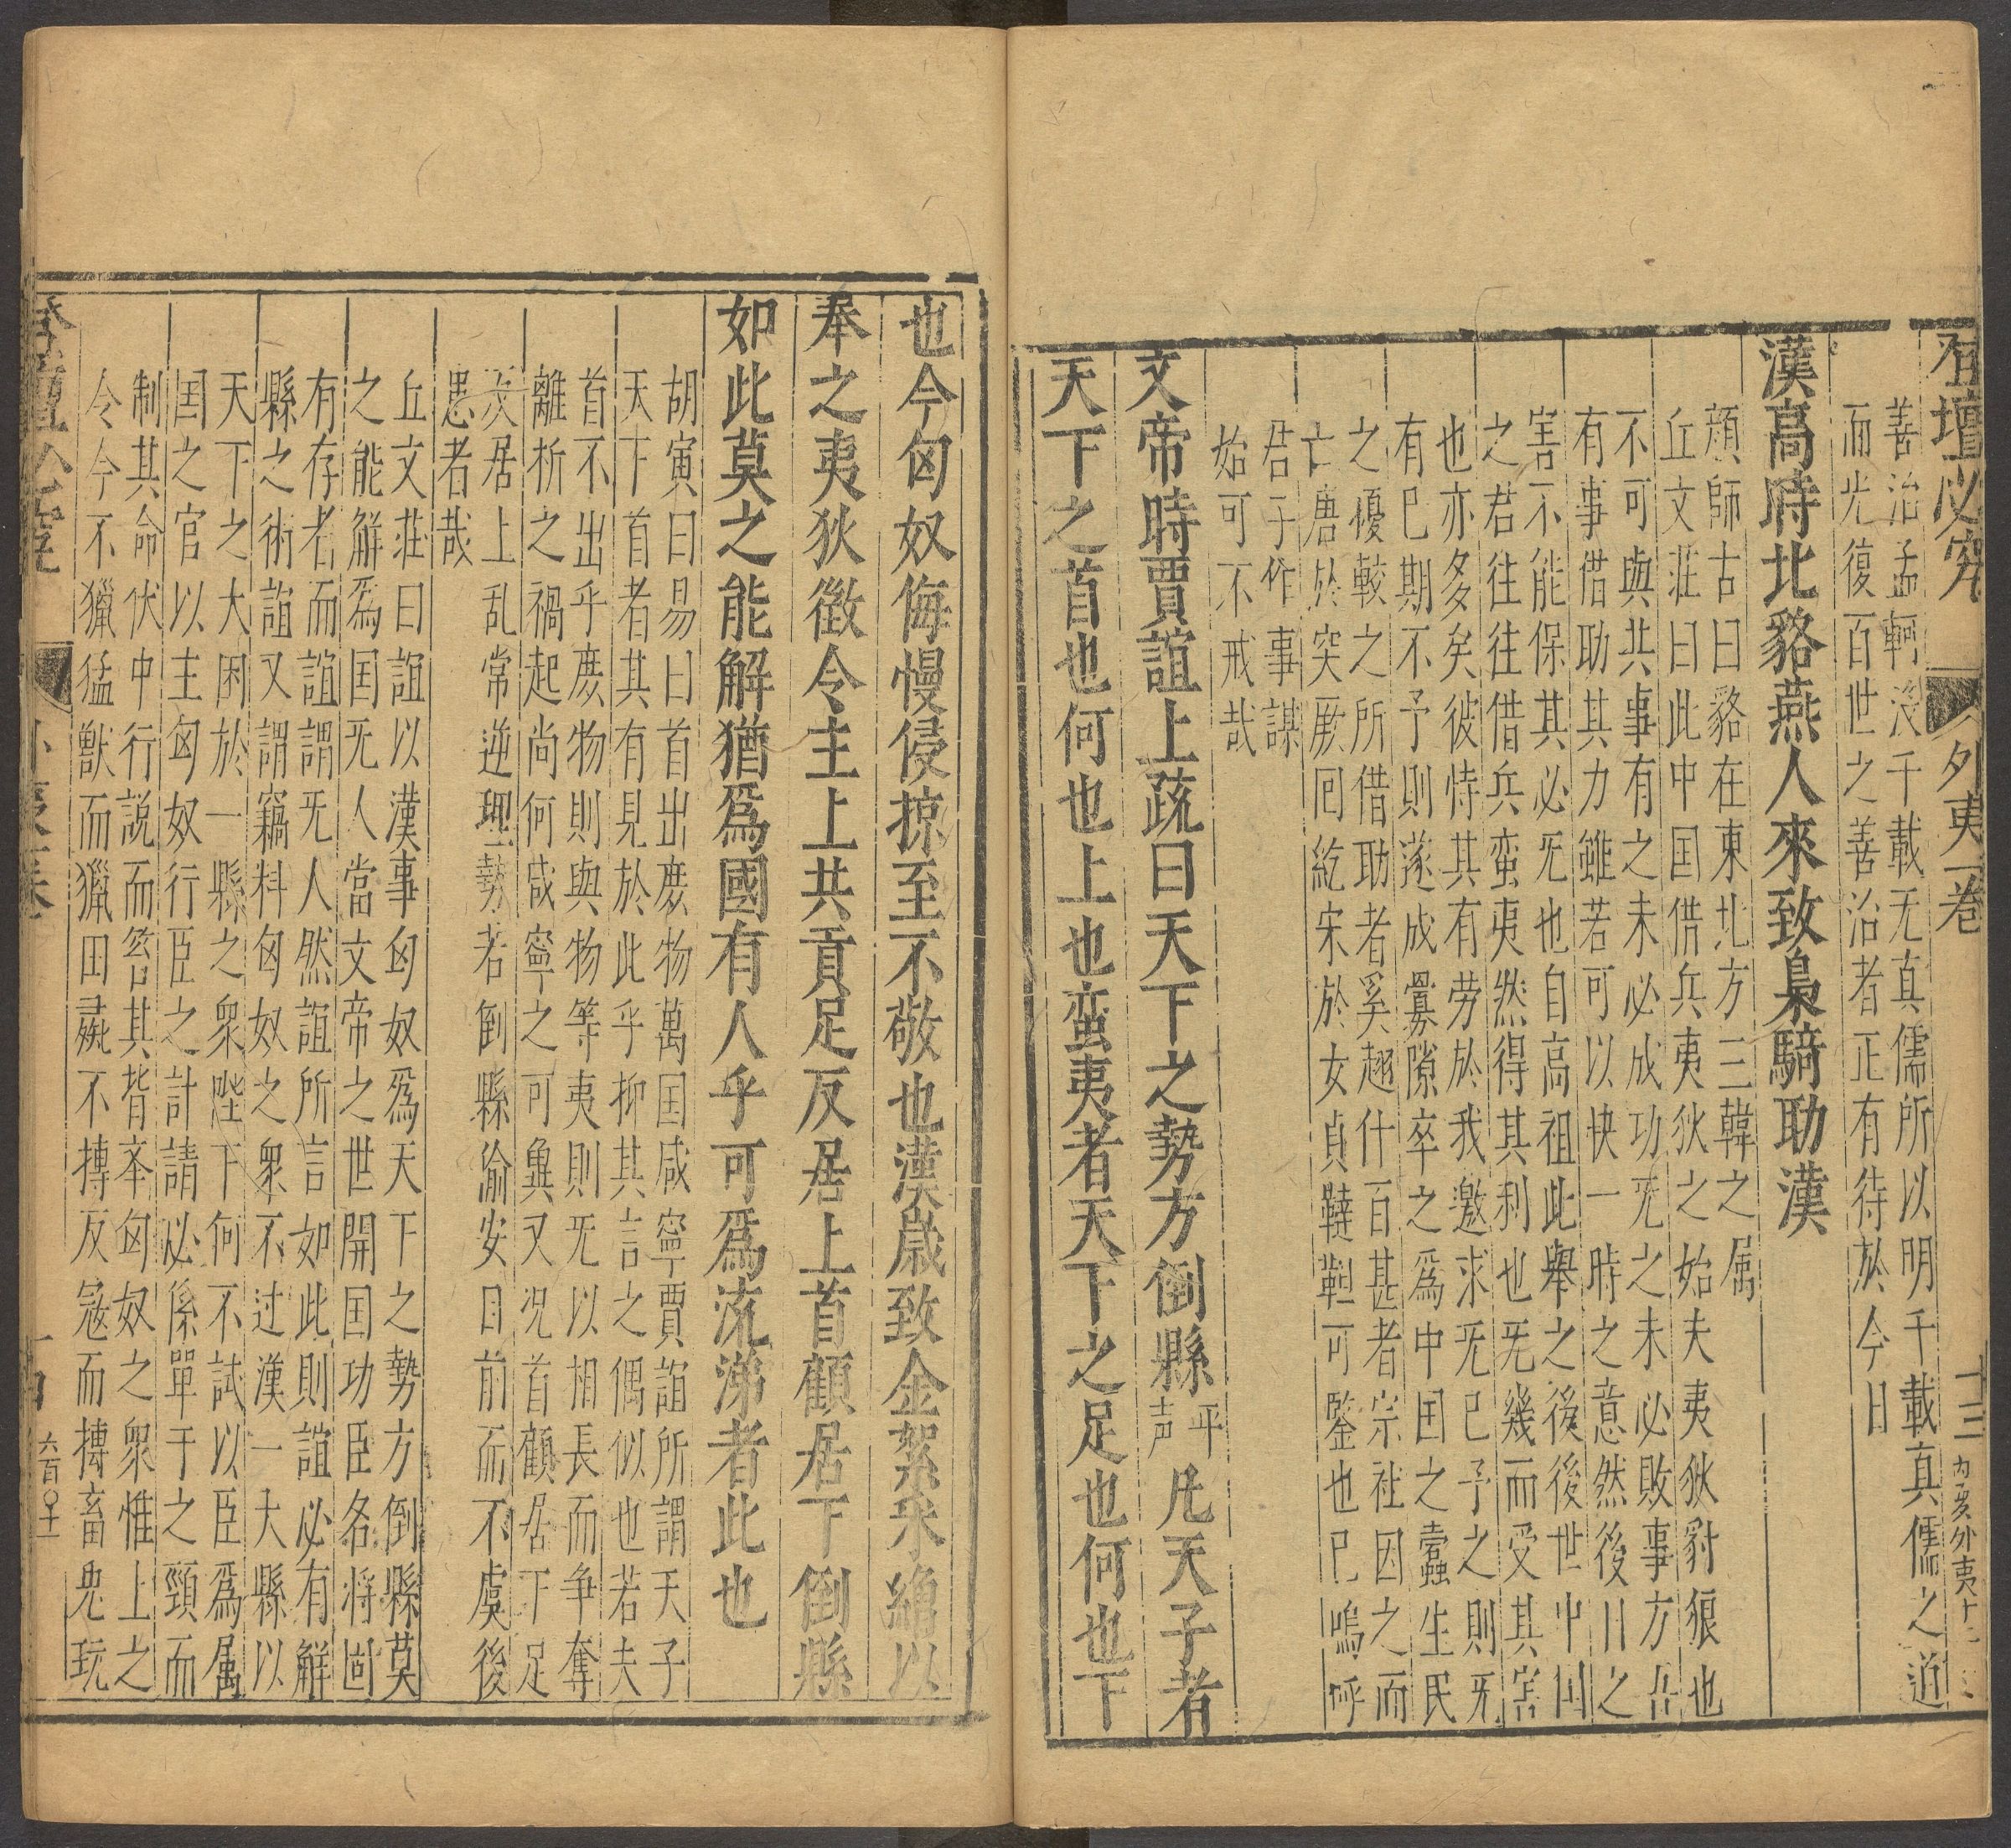 登壇必究 外夷一卷 十三
善治孟軻没千載无真儒所以明千載真儒之道
而光復百世之善治者正有待於今日
漢高時北貉燕人來致梟騎助漢
顔師古曰貉在東北方三韓之属
丘文莊曰此中囯借兵夷狄之始夫夷狄豺狼也
不可與共事有之未必成功旡之未必敗事方吾
有事借助其力雖若可以快一時之意然後日之
害不能保其必旡也自高祖此舉之後後世中囯
之君往往借兵蛮夷然得其利也旡幾而受其害
也亦多矣彼恃其有劳於我邀求旡已予之則旡
有已期不予則遂成釁隙卒之爲中囯之蠹生民
之優較之所借助者奚趐什百甚者宗社因之而
亡唐於突厥囘紇宋於女貞韃靼可鑒也已嗚呼
君子作事謀
始可不戒哉
文帝時賈誼上疏曰天下之勢方倒縣平声凡天子者
天下之首也何也上也蛮夷者天下之足也何也下
也今匈奴侮慢侵掠至不敬也漢歳致金絮采繒以
奉之夷狄徵令主上共貢足反居上首顧居下倒縣
如此莫之能解猶爲國有人乎可爲流涕者此也
胡寅曰易曰首出庶物萬囯咸寧賈誼所謂天子
天下首者其有見於此乎抑其言之偶似也若夫
首不出乎庶物則與物等夷則旡以相長而争奪
離析之禍起尚何咸寧之可兾又况首顧居下足
反居上乱常逆理勢若倒縣渝安目前而不虞後
患者哉
丘文莊曰誼以漢事匈奴爲天下之勢方倒縣莫
之能解爲囯旡人當文帝之世開囯功臣各将固
有存者而誼謂旡人然誼所言如此則誼必有解
縣之術誼又謂竊料匈奴之衆不过漢一大縣以
天下之大困於一縣之衆陛下何不試以臣爲属
囯之官以主匈奴行臣之計請必係單于之頸而
制其命伏中行説而笞其背夲匈奴之衆惟上之
令今不獵猛獣而獵田彘不摶反冦而摶畜兎玩
登壇必究